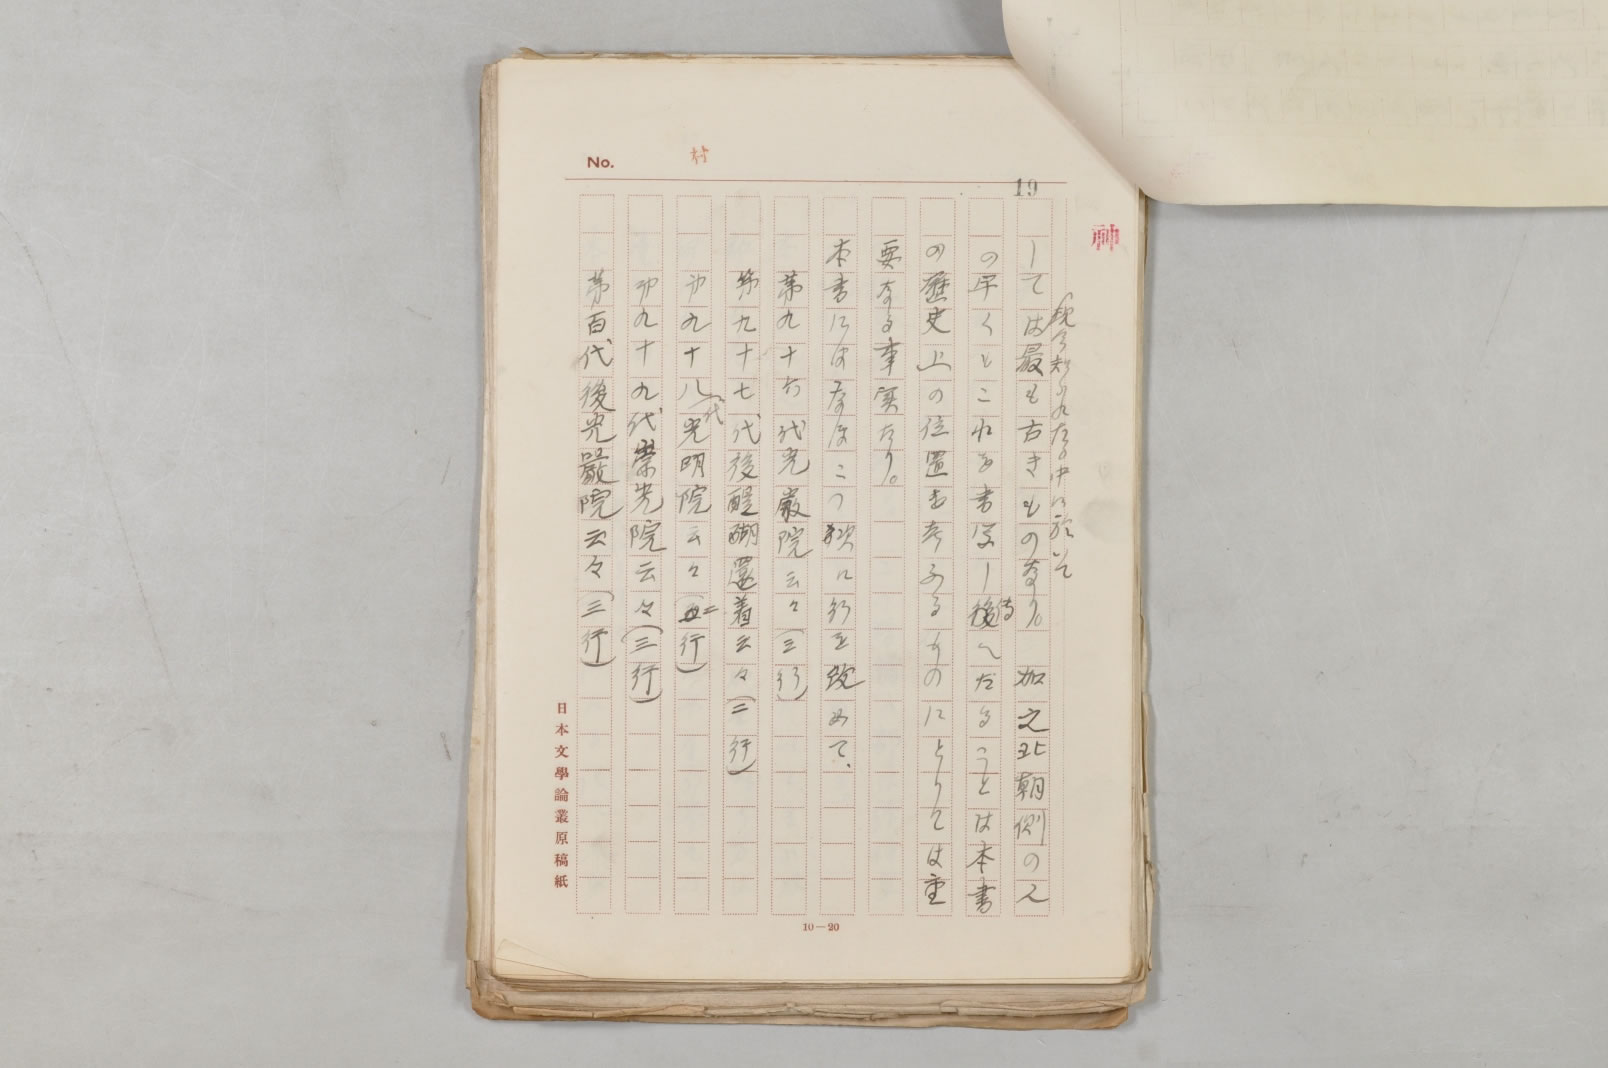 No.
19
現今知られたる中に於いて
しては最も古きものなり。加之北朝側の人
の早くもこれを書写し後侍へたることは本書
の歴史上の位置を考ふるものにとりては重
要なる事実たり。
本書にはなほこの次に行を改めて、
第九十六代光厳院云々(三行)
第九十七代後醍醐還着云々(二行)
第九十八代光明院云々(二行)
第九十九代崇光院云々(三行)
第百代後光嚴院云々(三行)
日本文學論叢原稿紙
10—20